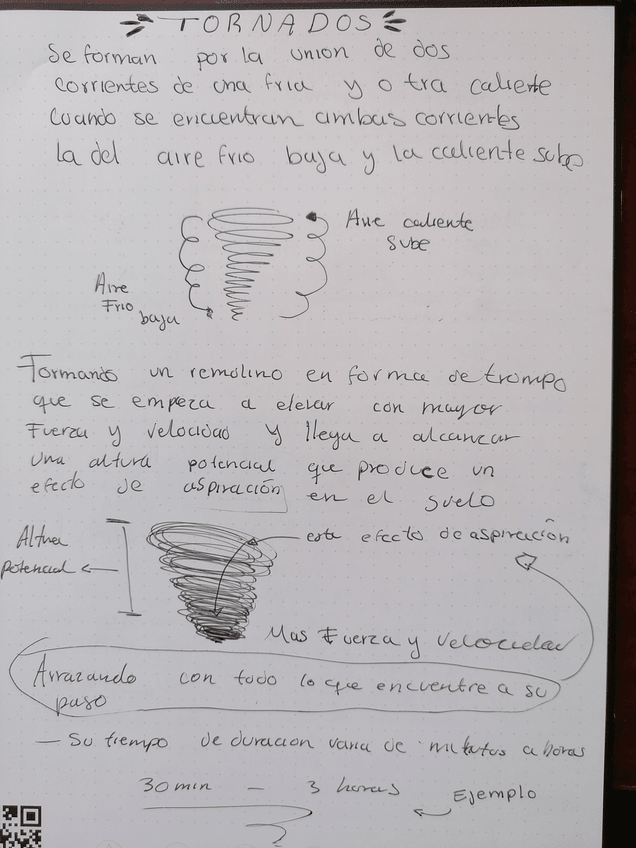 TORNADOS
Se forman por la union de dos
corrientes de una fria y otra caliente
Cuando se encuentran ambas corrientes
la del aire frio baja y la caliente sube
Aire caliente
sube
Aire
Frio
baja
Formando un remolino en forma de trompo
que se empeza a elevar con mayor
Fuerza y velocidad y llega a alcanzar
una altura potencial que produce un
efecto de aspiración en el suelo
Altura
potencial
este efecto de aspiración
Mas Fuerza y velocidad
Arrazando con todo lo que encuentre a su
paso
– Su tiempo de duracion varia de minutos a horas
30 min – 3 horas
Ejemplo